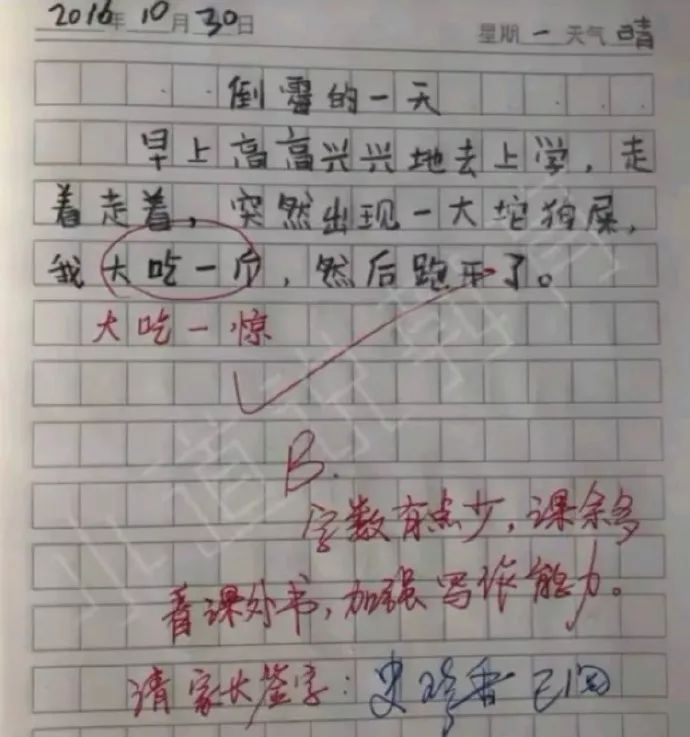 2016年 10月 30日 星期 一 天气 晴
倒霉的一天
早上高高兴兴地去上学，走
着走着，突然出现一大坨狗屎，
我大吃一斤，然后跑开了。
大吃一惊
B.
字数有点少，课余多
看课外书，加强写作能力。
请家长签字：史珍香 已阅
小道说教育